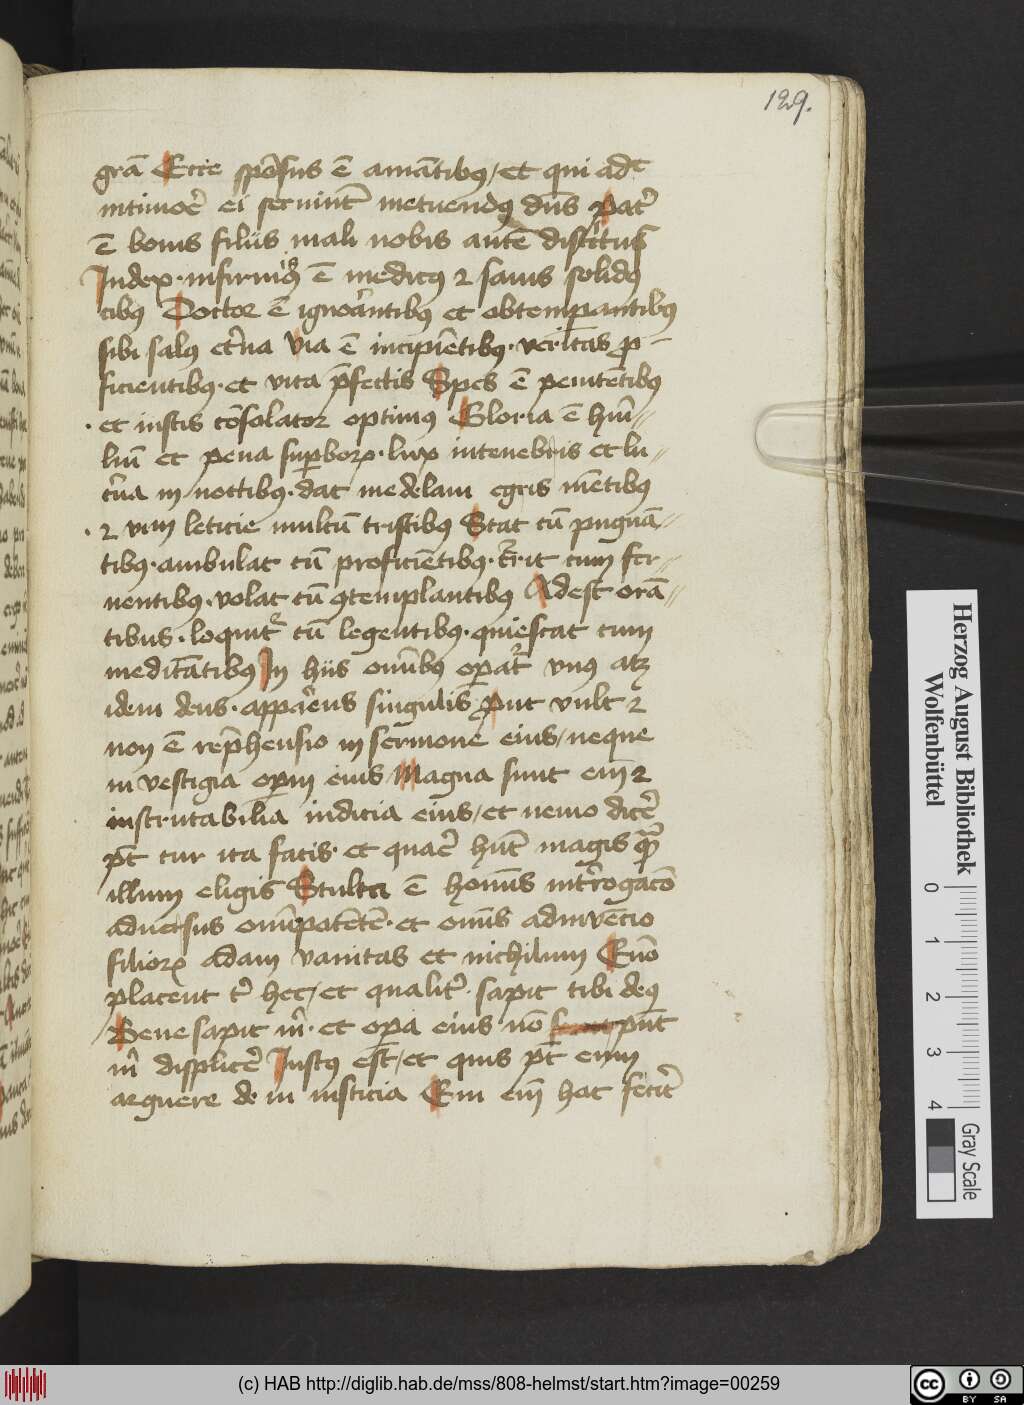 129.
grā Ecce spōsus ē amātibus / et qui adc
intimoē ei seruiūt metuendus dn̄s Pater
ē bonis filiis mali nobis autē districtus
Iudex · infirmis ē medicus ⁊ sanis solidus
cibus Doctor ē ignorantibus et obtemperantibus
sibi salus eterna Via ē incipiētibus · veritas pro-
ficientibus · et vita perfectis Spes ē penitētibus
· et iustis cōsolator optimus Gloria ē humi//
liū et pena superborum · lux in tenebris et lu//
cerna in noctibus · dat medelam egris mētibus
· ⁊ vim leticie multū tristibus Stat cū pugnā//
tibus · ambulat cū proficiētibus · Currit cum fer//
uentibus · volat cū ꝯtemplantibus Adest orā//
tibus · loquitur cū legentibus · quiescat cum
meditātibus In hiis omībus operatur vnus atque
idem deus · apparens singulis prout vult ⁊
non ē reprehensio in sermone eius / neque
in vestigia operum eius Magna sunt enī ⁊
inscrutabilia iudicia eius / et nemo dicere
pōt cur ita facis · et quare hunc magis quam
illum eligis Stulta ē hominis interrogacō
aduersus omīpotētē · et omnis adinuēcio
filiorum adam vanitas et nichilum Quō
placent tibi hec / et qualiter sapit tibi deus
Bene sapit mihi · et opera eius nō pn̄t
mihi displicere Iustus est / et quis pōt eum
arguere de in iusticia Cui enī hac fecit
Herzog August Bibliothek
Wolfenbüttel
0
1
2
3
4
Gray Scale
(c) HAB http://diglib.hab.de/mss/808-helmst/start.htm?image=00259
cc
BY SA